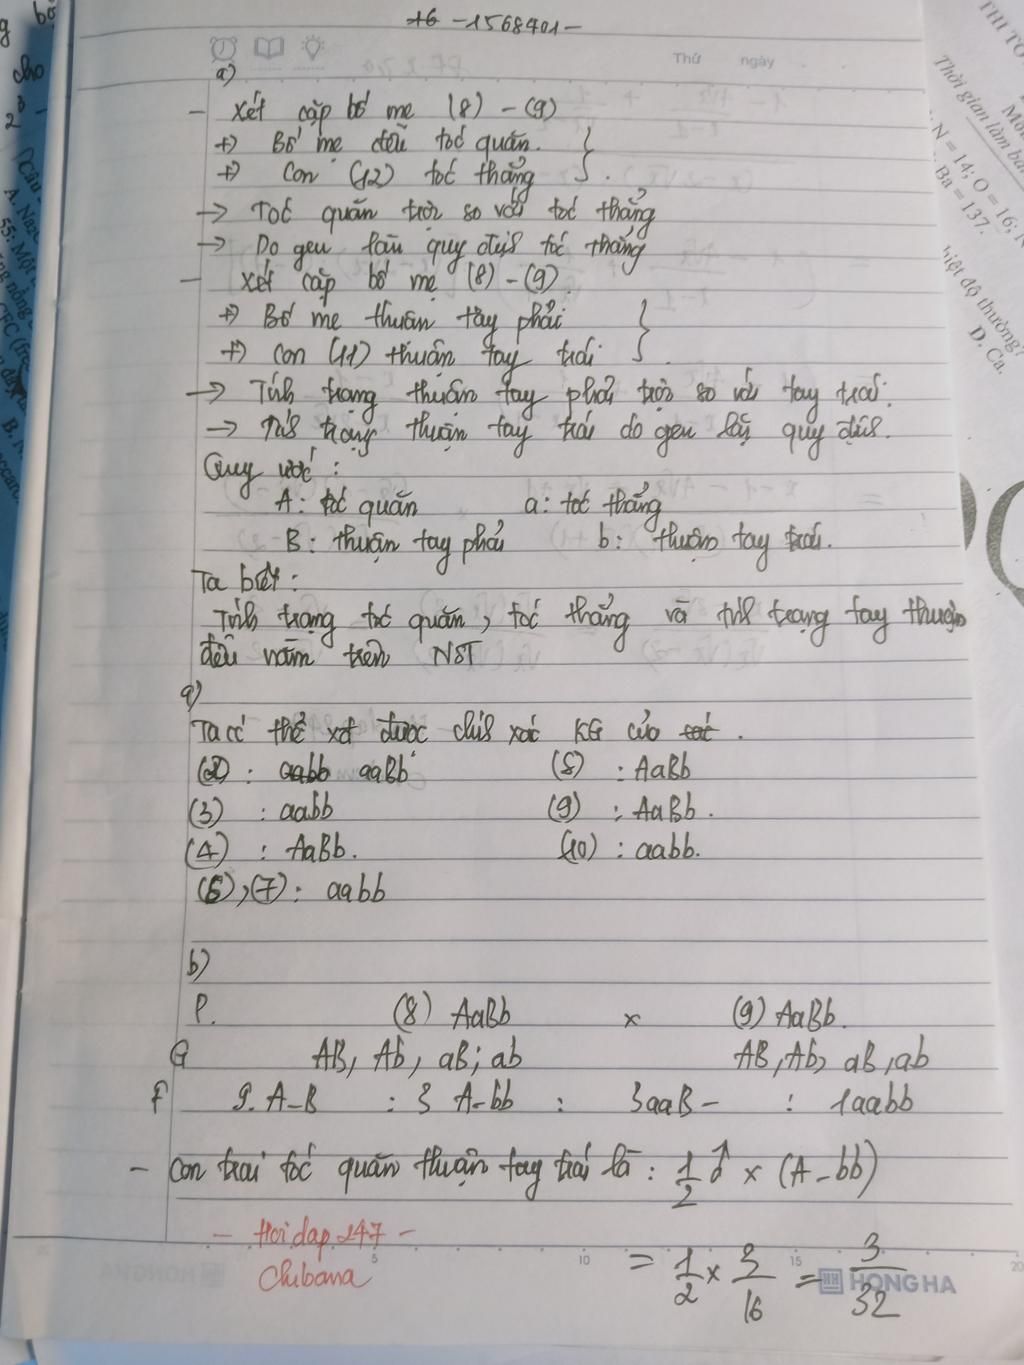 16 - 1568401 -
Thứ ngày
a)
- Xét cặp bố mẹ (8) - (9)
+) Bố mẹ đều tóc quăn.
+) Con (12) tóc thẳng
→ Tóc quăn trội so với tóc thẳng
→ Do gen lặn quy định tóc thẳng
- Xét cặp bố mẹ (8) - (9)
+) Bố mẹ thuận tay phải
+) Con (11) thuận tay trái
→ Tính trạng thuận tay phải trội so với tay trái.
→ Tính trạng thuận tay trái do gen lặn quy định.
Quy ước :
A : tóc quăn a : tóc thẳng
B : thuận tay phải b : thuận tay trái.
Ta biết :
Tính trạng tóc quăn, tóc thẳng và tính trạng tay thuận
đều nằm trên NST
a)
Ta có thể xđ được chính xác KG của các .
(2) : aabb aaBb (8) : AaBb
(3) : aabb (9) : AaBb.
(4) : AaBb. (10) : aabb.
(6), (7) : aabb
b)
P. (8) AaBb x (9) AaBb.
G AB, Ab, aB; ab AB, Ab, aB, ab
F 9. A-B : 3 A-bb : 3aaB- : 1aabb
- Con trai tóc quăn thuận tay trái là : 1/2 ♂ x (A-bb)
= 1/2 x 3/16 = 3/32
- Hoidap247 -
Chibana
5 10 15 20
HONG HA
THI TO
Thời gian làm bài
N = 14; O = 16; N
Ba = 137.
D. Ca.
cho